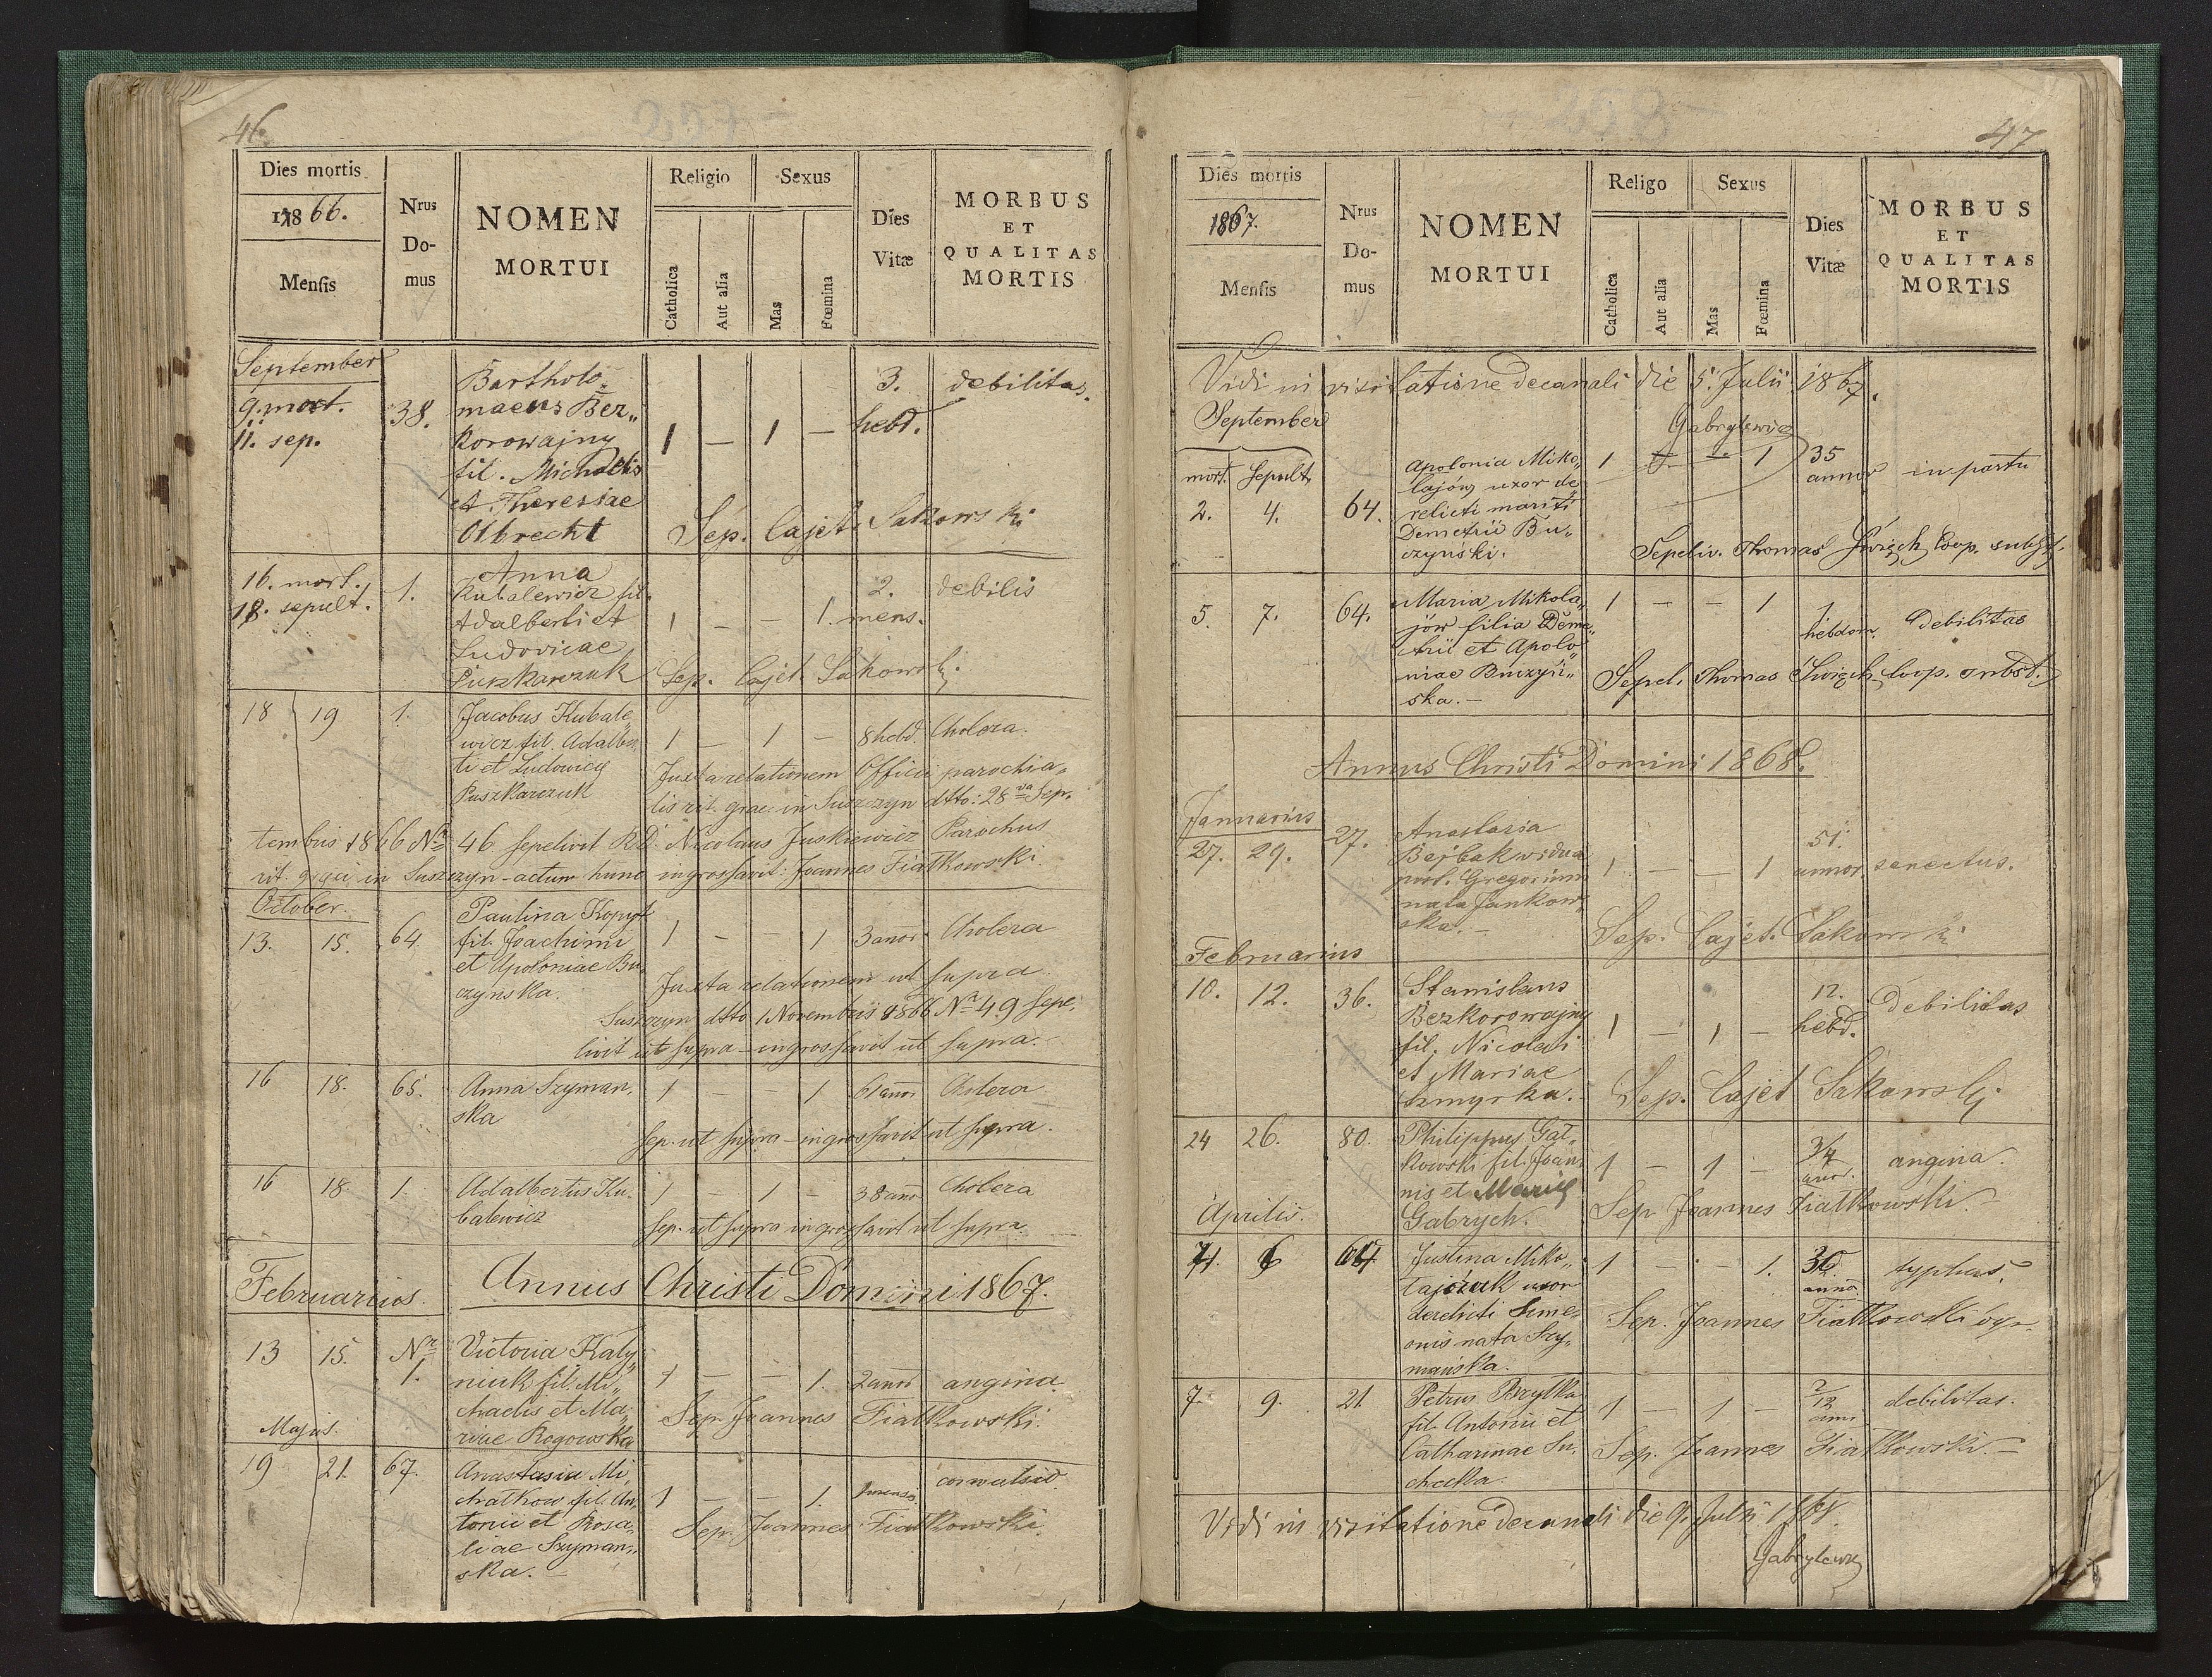 46.
Dies mortis
1866.
Mensis
Nrus
Do-
mus
NOMEN
MORTUI
Religio
Sexus
Catholica
Aut alia
Mas
Fœmina
Dies
Vitæ
MORBUS
ET
QUALITAS
MORTIS
September
9. mort.
11. sep.
38.
Bartholo„
maeus Bez„
korowajny
fil. Michaelis
et Theresiae
Olbrecht
1 — 1 —
3.
hebd.
debilitas.
Sep. Cajet. Sakowski
16. mort.
18. sepult.
1.
Anna
Kubalewicz fil.
Adalberti et
Ludovicae
Puszkarczuk
1 — — 1.
2.
mens.
debilis
Sep. Cajet. Sakowski.
18 19 1.
Jacobus Kubale„
wicz fil. Adalber„
ti et Ludowicy
Puszkarczuk
1 — 1 — 8 hebd. Cholera.
Juxta relationem Officii parochia„
lis rit. graec. in Suszczyn dtto: 28va Sep„
tembris 1866 Nr 46 sepelivit R.D. Nicolaus Juskiewicz Parochus
rit. graeci in Suszczyn — actum hunc ingrossavit: Joannes Fiałkowski.
October.
13. 15. 64.
Paulina Kopyt
fil. Joachimi
et Apoloniae Bu„
czynska.
1 — — 1 3 annor. Cholera
Juxta relationem ut supra
Suszczyn dtto 1 Novembris 1866 Nr 49 sepe„
livit ut supra — ingrossavit ut supra.
16 18. 65.
Anna Szyman„
ska
1 — 1 61 annor Cholera
Sep. ut supra — ingrossavit ut supra.
16 18. 1.
Adalbertus Ku„
balewicz
1 — 1 — 38 annor Cholera
Sep. ut supra ingrossavit ut supra.
Annus Christi Domini 1867.
Februarius.
13 15. Nr
1.
Victoria Kaly„
niuk fil. Mi„
chaelis et Ma„
riae Rogowska
1 — — 1. 2 annor angina.
Sep. Joannes Fiałkowski.
Majus.
19 21. 67.
Anastasia Mi„
chałkow fil. An„
tonii et Rosa„
liae Szyman„
ska. —
1 — — 1. mens. convulsio.
Sep. Joannes Fiałkowski.
47
Dies mortis
1867.
Mensis
Nrus
Do-
mus
NOMEN
MORTUI
Religo
Sexus
Catholica
Aut alia
Mas
Fœmina
Dies
Vitæ
MORBUS
ET
QUALITAS
MORTIS
Vidi in visitatione decanali die 5. Julii 1867.
Gabrylewicz
September
mort. Sepult.
2. 4. 64.
Apolonia Miko„
łajów uxor de
relicti mariti
Demetrii Bu„
czyński.
1 — — 1 35
annor in partu
Sepeliv. Thomas Święch Coop. subst.
5. 7. 64.
Maria Mikoła„
jów filia Deme„
trii et Apolo„
niae Buczyń„
ska. —
1 — — 1 1
hebdom. Debilitas
Sepel. Thomas Święch Coop. subst.
Annus Christi Domini 1868.
Januarius
27. 29. 27.
Anastasia
Bejbak vidua
post. Gregorium
nata Jankow„
ska. —
1 — — 1
51.
annor. senectus.
Sep. Cajet. Sakowski
Februarius
10. 12. 36.
Stanislaus
Bezkorowajny
fil. Nicolai
et Mariae
Szmyrka.
1 — 1 —
12.
hebd.
Debilitas
Sep. Cajet Sakowski
24 26. 80.
Philippus Gał„
kowski fil. Joan„
nis et Mariae
Gabrych.
1 — 1 — 3/4
annor. angina.
Sep Joannes Fiałkowski.
Aprilis.
4. 6 64
Justina Miko„
łajczuk uxor
derelicti Sime„
onis nata Szy„
mańska.
1 — — 1. 36
annor. typhus.
Sep. Joannes Fiałkowski
7. 9. 21
Petrus Brzytka
fil. Antonii et
Catharinae Su„
checka.
1 — 1 — 2/12
anni debilitas.
Sep. Joannes Fiałkowski. —
Vidi in visitatione decanali die 9. Julii 1868.
Gabrylewicz